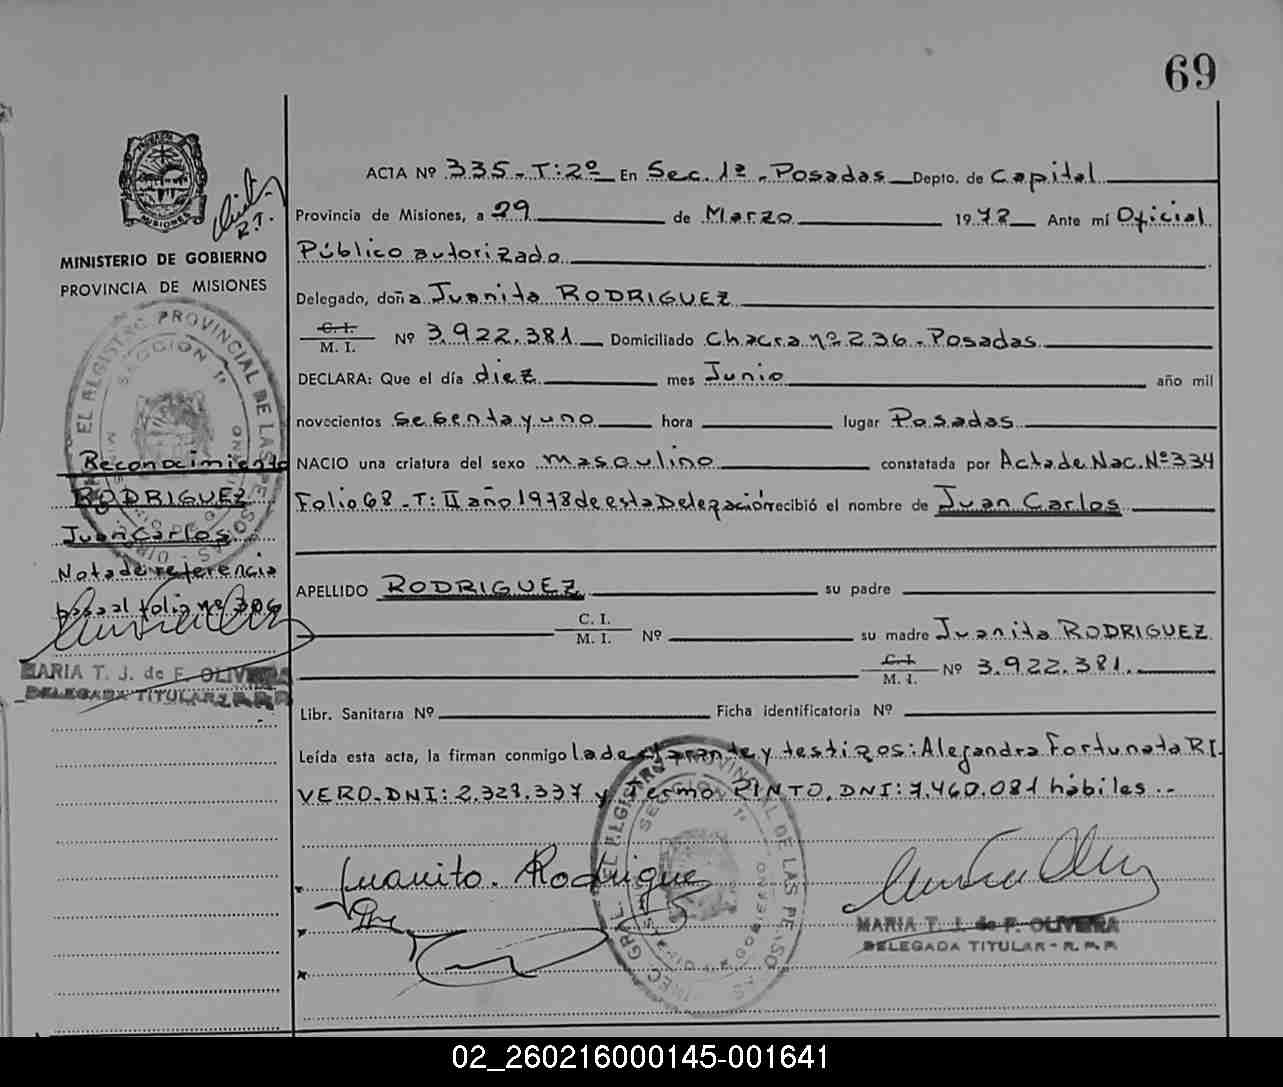 69
ACTA Nº 335 - T: 2º En Sec. 1ª - Posadas Depto. de Capital
Provincia de Misiones, a 29 de Marzo 1978 Ante mí Oficial
Público autorizado
Delegado, doña Juanita RODRIGUEZ
C. I.
M. I. Nº 3.922.381 Domiciliado Chacra nº 236 - Posadas
DECLARA: Que el día diez mes Junio año mil
novecientos sesenta y uno hora lugar Posadas
NACIO una criatura del sexo masculino constatada por Acta de Nac. Nº 334
Folio 68 - T: II año 1978 de esta Delegación recibió el nombre de Juan Carlos
APELLIDO RODRIGUEZ su padre
C. I.
M. I. Nº su madre Juanita RODRIGUEZ
C. I.
M. I. Nº 3.922.381.
Libr. Sanitaria Nº Ficha identificatoria Nº
Leída esta acta, la firman conmigo la declarante y testigos: Alejandra Fortunata RI-
VERO - DNI: 2.329.337 y Termo PINTO, DNI: 7.460.081 hábiles.-
Juanita. Rodrigue
MARIA T. J. de F. OLIVEIRA
DELEGADA TITULAR - R. P. P.
PROVINCIA
MISIONES
R.T.
MINISTERIO DE GOBIERNO
PROVINCIA DE MISIONES
EL REGISTRO PROVINCIAL DE LAS PERSONAS
SECCION 1ª
Reconocimiento
RODRIGUEZ
Juan Carlos
Nota de referencia
pasa al folio nº 306
MARIA T. J. de F. OLIVEIRA
DELEGADA TITULAR - R. P. P.
DIREC. GRAL. DEL REGISTRO PROVINCIAL DE LAS PERSONAS
SECCION 1ª
GOBIERNO
02_260216000145-001641